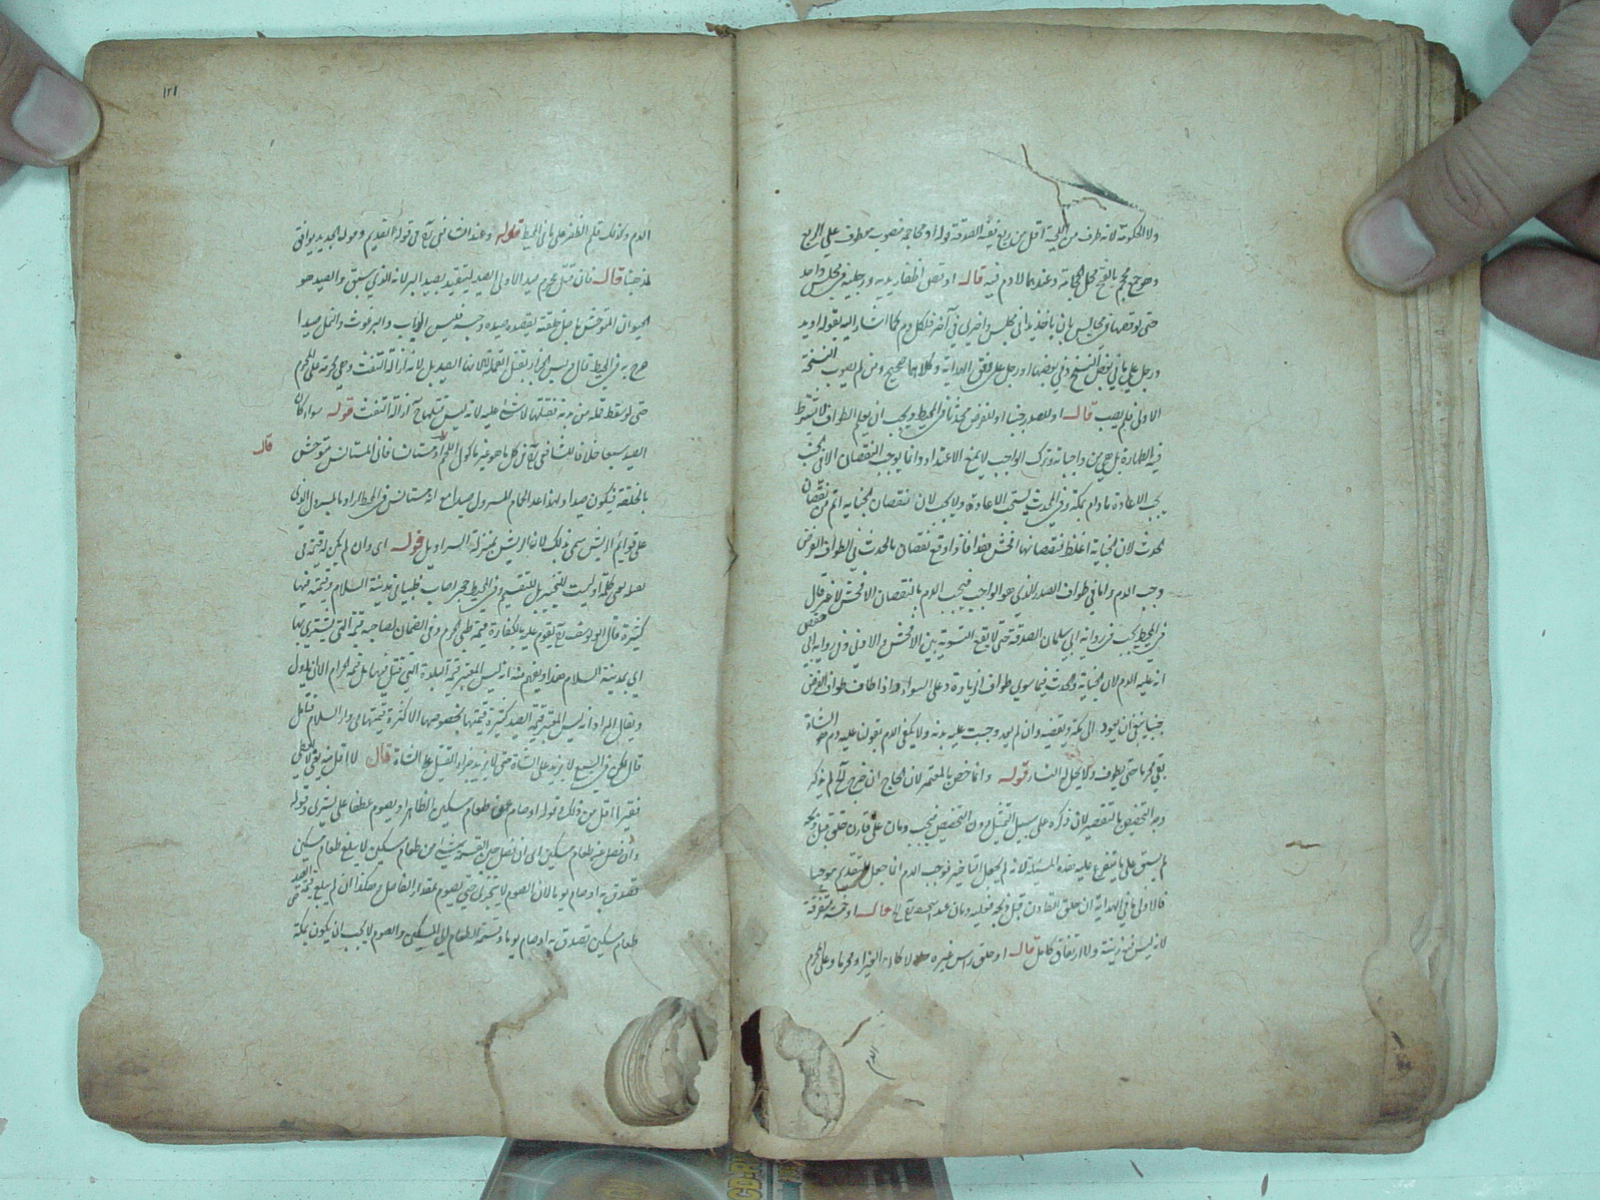 ولا الحكومة لانه طرف من اللحية اقل من ربع ففيه الصدقة قوله او محاجمه منصوب معطوف على الربع
وهو جمع محجم بالفتح محل الحجامة وعندهما لا دم فيه قال او قص اظفار يديه ورجليه في مجلس واحد
حتى لو قصها في مجالس بان ياخذ يدا في مجلس واخرى في آخر فلكل دم كما اشار اليه بقوله او يد
ورجل على ما في بعض النسخ وفي بعضها او رجل على وفق الهداية وكلاهما صحيح ومن لم يصوب النسخة
الاولى فلم يصب قال او للصدر جنبا او للفرض محدثا وفي المحيط ويجب ان يعلم الطواف لا يشترط
فيه الطهارة بل هي من واجباته وترك الواجب لا يمنع الاعتداد وانما يوجب النقصان الا في الجنب
يجب الاعادة ما دام بمكة وفي المحدث يستحب الاعادة ولا يجب لان نقصان الجنابة اتم من نقصان
الحدث لان الجنابة اغلظ فنقصانها افحش فقد افاد اوقع نقصان بالحدث في الطواف الفرض
وجب الدم واما في طواف الصدر الذي هو الواجب فيجب الدم بالنقصان الافحش لا غير قال
في المحيط يجب في رواية ابي سليمان الصدقة حتى لا يقع التسوية بين الافحش والادنى وفي رواية ابي حفص
انه عليه الدم لان الجنابة والحدث فيما سوى طواف الزيارة على السواء واذا طاف طواف الفرض
جنبا ينبغي ان يعود الى مكة ويقضيه وان لم يعد وجبت عليه بدنة ولا يكفي الدم بقولنا عليه دم هو الشاة
بقي محرما حتى يطوف ولا يحل النساء قوله وانما خص بالمعتمر لان الحاج ان خرج لم يذكر
وجه التخصيص بالتقصير لان ذكره على سبيل التمثيل دون التخصيص فيجب دمان على قارن حلق قبل ذبحه
لم يسبق على ما يتفرع عليه هذه المسئلة لانه لم يجعل التاخير فوجب الدم انما جعل التقديم موجبا
فالاولى ما في الهداية ان حلق القارن قبل ذبحه فعليه دمان عند ابي حنيفة قال او خمسة متفرقة
لانه ليس فيه زينة ولا ارتفاق كامل قال او حلق راس غيره حلالا كان الغير او محرما وعلى المحرم
الدم
١٢١
الدم وكذلك قلم الظفر على ما في المحيط قوله وعند الشافعي في قوله القديم وقوله الجديد يوافق
لمذهبنا قال فان قتل محرم صيدا الاولى الصيد ليتقيد بصيد البر لانه الذي سبق والصيد هو
الحيوان المتوحش باصل خلقته ليقصد صيده وحبسه فليس الذباب والبرغوث والنمل صيدا
صرح به في المحيط قال وليس الجزاء بقتل القملة لانها الصيد بل لانه ازالة التفث وهي محرمة على المحرم
حتى لو سقط قملة من بدنه فقتلها لا شيء عليه لانه ليس قتلها ازالة التفث قوله سواء كان
الصيد سبعا خلافا للشافعي في كل ما هو غير ماكول اللحم او مستانسا فان المستانس متوحش
قال
بالخلقة فيكون صيدا ولهذا عد الحمام المسرول صيدا مع انه مستانس في الحظائر او بالمسرول الذي
على قوائم الريش سمي بذلك لان الريش بمنزلة السراويل قوله اي وان لم يكن له قيمة في
يعني كلمة او ليست للتخيير بل للتقسيم وفي المحيط محرم اصاب ظبيا في مدينة السلام وقيمته فيها
كثيرة قال ابو يوسف يقوم عليه بالكفارة قيمة ظبي لحرم وفي الضمان لصاحبه قيمة التي يشترى بها
اي بمدينة السلام هذا ويفهم منه انه ليس المعتبر قيمة البلدة التي قتل فيها بل قيمة الحرام الا ان ياول
ويقال المراد انه ليس المعتبر قيمة الصيد كثيرة قيمتها بخصوصها لا كثرة قيمتها في دار السلام فتامل
قال لكن في السبع لا يزيد على الشاة حتى لا يزيد جزاء القتل على الشاة قال لا اقل منه يعني لا يعطي
فقيرا اقل من ذلك قوله او صام عن طعام مسكين بالظاهر او يصوم عطفا على يشتري وقوله
وان فضل عن طعام مسكين اي ان فضل حين القسمة شيء من طعام مسكين لا يبلغ طعام مسكين
فتصدق به او صام يوما لان الصوم لا يتجزى حتى يصوم بمقدار الفاضل وهكذا ان لم يبلغ قيمة الصيد
طعام مسكين تصدق به او صام يوما وقسمة الطعام الى المسكين والصوم لا يجب ان يكون بمكة